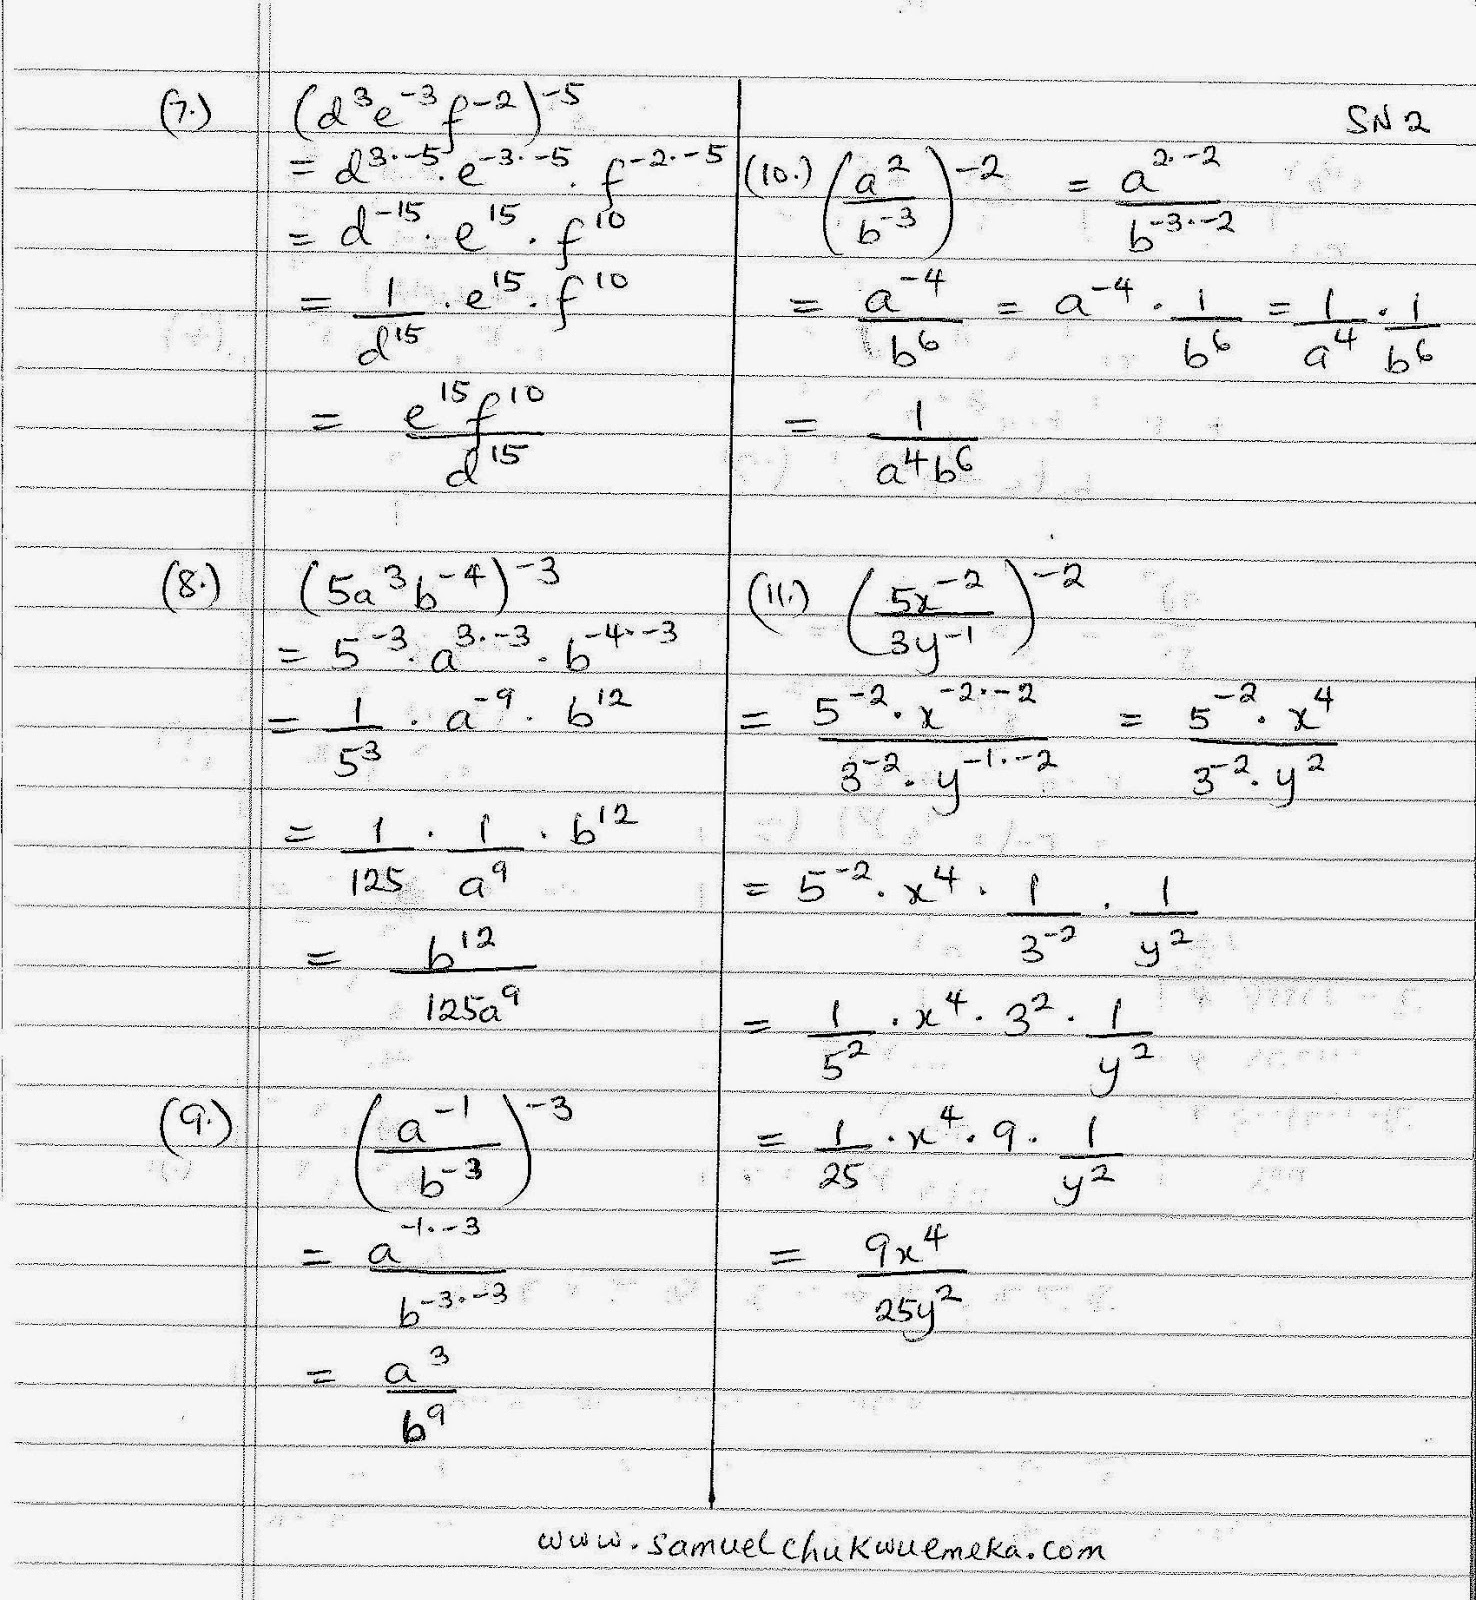 SN 2
(7.) (d³e⁻³f⁻²)⁻⁵
= d³·⁻⁵·e⁻³·⁻⁵·f⁻²·⁻⁵
= d⁻¹⁵·e¹⁵·f¹⁰
= 1/d¹⁵·e¹⁵·f¹⁰
= e¹⁵f¹⁰/d¹⁵
(8.) (5a³b⁻⁴)⁻³
= 5⁻³·a³·⁻³·b⁻⁴·⁻³
= 1/5³·a⁻⁹·b¹²
= 1/125·1/a⁹·b¹²
= b¹²/125a⁹
(9.) (a⁻¹/b⁻³)⁻³
= a⁻¹·⁻³/b⁻³·⁻³
= a³/b⁹
(10.) (a²/b⁻³)⁻² = a²·⁻²/b⁻³·⁻²
= a⁻⁴/b⁶ = a⁻⁴·1/b⁶ = 1/a⁴·1/b⁶
= 1/a⁴b⁶
(11.) (5x⁻²/3y⁻¹)⁻²
= 5⁻²·x⁻²·⁻²/3⁻²·y⁻¹·⁻² = 5⁻²·x⁴/3⁻²·y²
= 5⁻²·x⁴·1/3⁻²·1/y²
= 1/5²·x⁴·3²·1/y²
= 1/25·x⁴·9·1/y²
= 9x⁴/25y²
www.samuelchukwuemeka.com